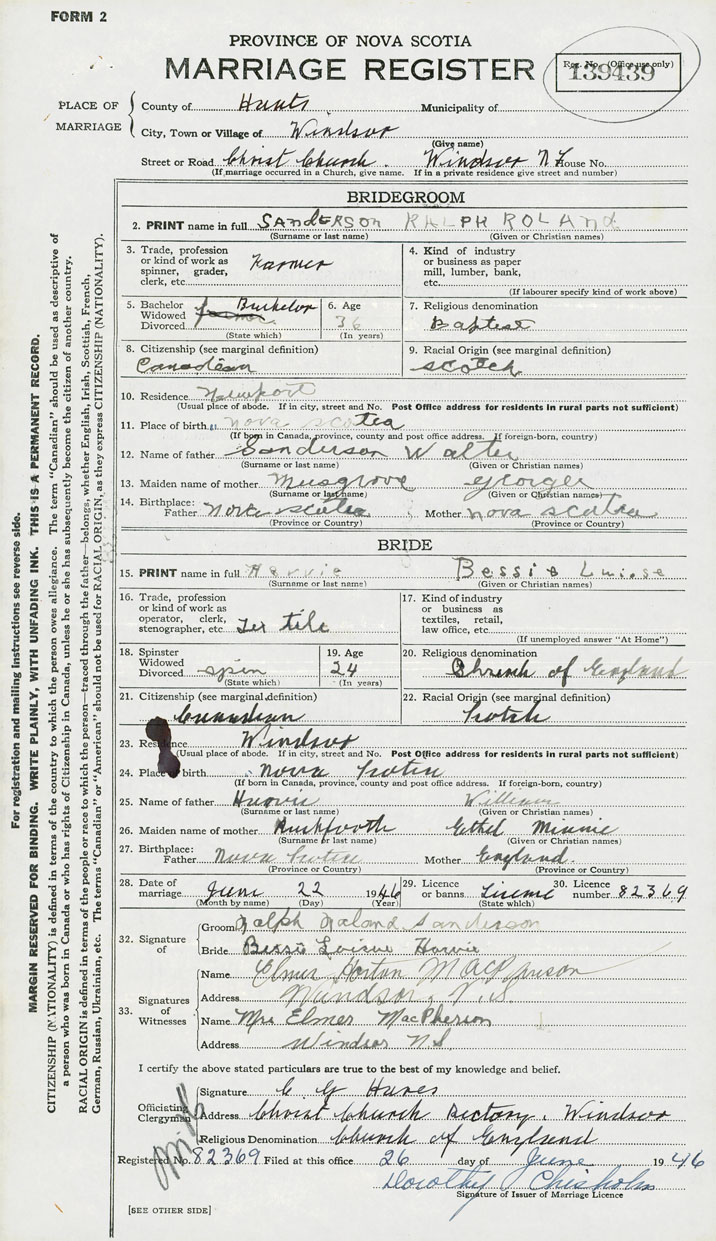 FORM 2
PROVINCE OF NOVA SCOTIA
MARRIAGE REGISTER
Reg. No. (Office use only)
139439
PLACE OF MARRIAGE
County of Hants Municipality of
City, Town or Village of Windsor
(Give name)
Street or Road Christ Church. Windsor House No.
(If marriage occurred in a Church, give name. If in a private residence give street and number)
BRIDEGROOM
2. PRINT name in full SANDERSON RALPH ROLAND
(Surname or last name) (Given or Christian names)
3. Trade, profession or kind of work as spinner, grader, clerk, etc. Farmer
4. Kind of industry or business as paper mill, lumber, bank, etc.
(If labourer specify kind of work above)
5. Bachelor Widowed Divorced Bachelor
(State which)
6. Age 36
(In years)
7. Religious denomination
Baptist
8. Citizenship (see marginal definition)
Canadian
9. Racial Origin (see marginal definition)
Scotch
10. Residence Newport
(Usual place of abode. If in city, street and No. Post Office address for residents in rural parts not sufficient)
11. Place of birth Nova Scotea
(If born in Canada, province, county and post office address. If foreign-born, country)
12. Name of father Sanderson Walter
(Surname or last name) (Given or Christian names)
13. Maiden name of mother Musgrove
(Surname or last name) (Given or Christian names)
14. Birthplace: Father Nova Scotea Mother Nova Scotea
(Province or Country) (Province or Country)
BRIDE
15. PRINT name in full Harvie Bessie Luise
(Surname or last name) (Given or Christian names)
16. Trade, profession or kind of work as operator, clerk, stenographer, etc Tex tile
17. Kind of industry or business as textiles, retail, law office, etc.
(If unemployed answer "At Home")
18. Spinster Widowed Divorced spin
(State which)
19. Age 24
(In years)
20. Religious denomination
Church of England
21. Citizenship (see marginal definition)
Canadian
22. Racial Origin (see marginal definition)
Scotch
23. Residence Windsor
(Usual place of abode. If in city, street and No. Post Office address for residents in rural parts not sufficient)
24. Place birth Nova Scotia
(If born in Canada, province, county and post office address. If foreign-born, country)
25. Name of father Harvie William
(Surname or last name) (Given or Christian names)
26. Maiden name of mother Ethel Minnie
(Surname or last name) (Given or Christian names)
27. Birthplace: Father Nova Scotia Mother England.
(Province or Country) (Province or Country)
28. Date of marriage June 22 1946
(Month by name) (Day) (Year)
29. Licence or banns License
(State which)
30. Licence number 82369
32. Signature of
Groom Ralph Roland Sanderson
Bride Bessie Loisue Harvie
33. Signatures of Witnesses
Name Elmer Horton MacPherson
Address Windsor, N.S.
Name Mrs Elmer MacPherson
Address Windsor N.S.
I certify the above stated particulars are true to the best of my knowledge and belief.
Officiating Clergyman
Signature C G
Address Christ Church Rectory. Windsor
Religious Denomination Church of England
Registered No. 82369 Filed at this office 26 day of June 1946
Dorothy Chisholm
Signature of Issuer of Marriage Licence
[SEE OTHER SIDE]
For registration and mailing instructions see reverse side.
MARGIN RESERVED FOR BINDING. WRITE PLAINLY, WITH UNFADING INK. THIS IS A PERMANENT RECORD.
CITIZENSHIP (NATIONALITY) is defined in terms of the country to which the person owes allegiance. The term "Canadian" should be used as descriptive of
a person who was born in Canada or who has rights of Citizenship in Canada, unless he or she has subsequently become the citizen of another country.
RACIAL ORIGIN is defined in terms of the people or race to which the person—traced through the father—belongs, whether English, Irish, Scottish, French,
German, Russian, Ukrainian, etc. The terms "Canadian" or "American" should not be used for RACIAL ORIGIN, as they express CITIZENSHIP (NATIONALITY).